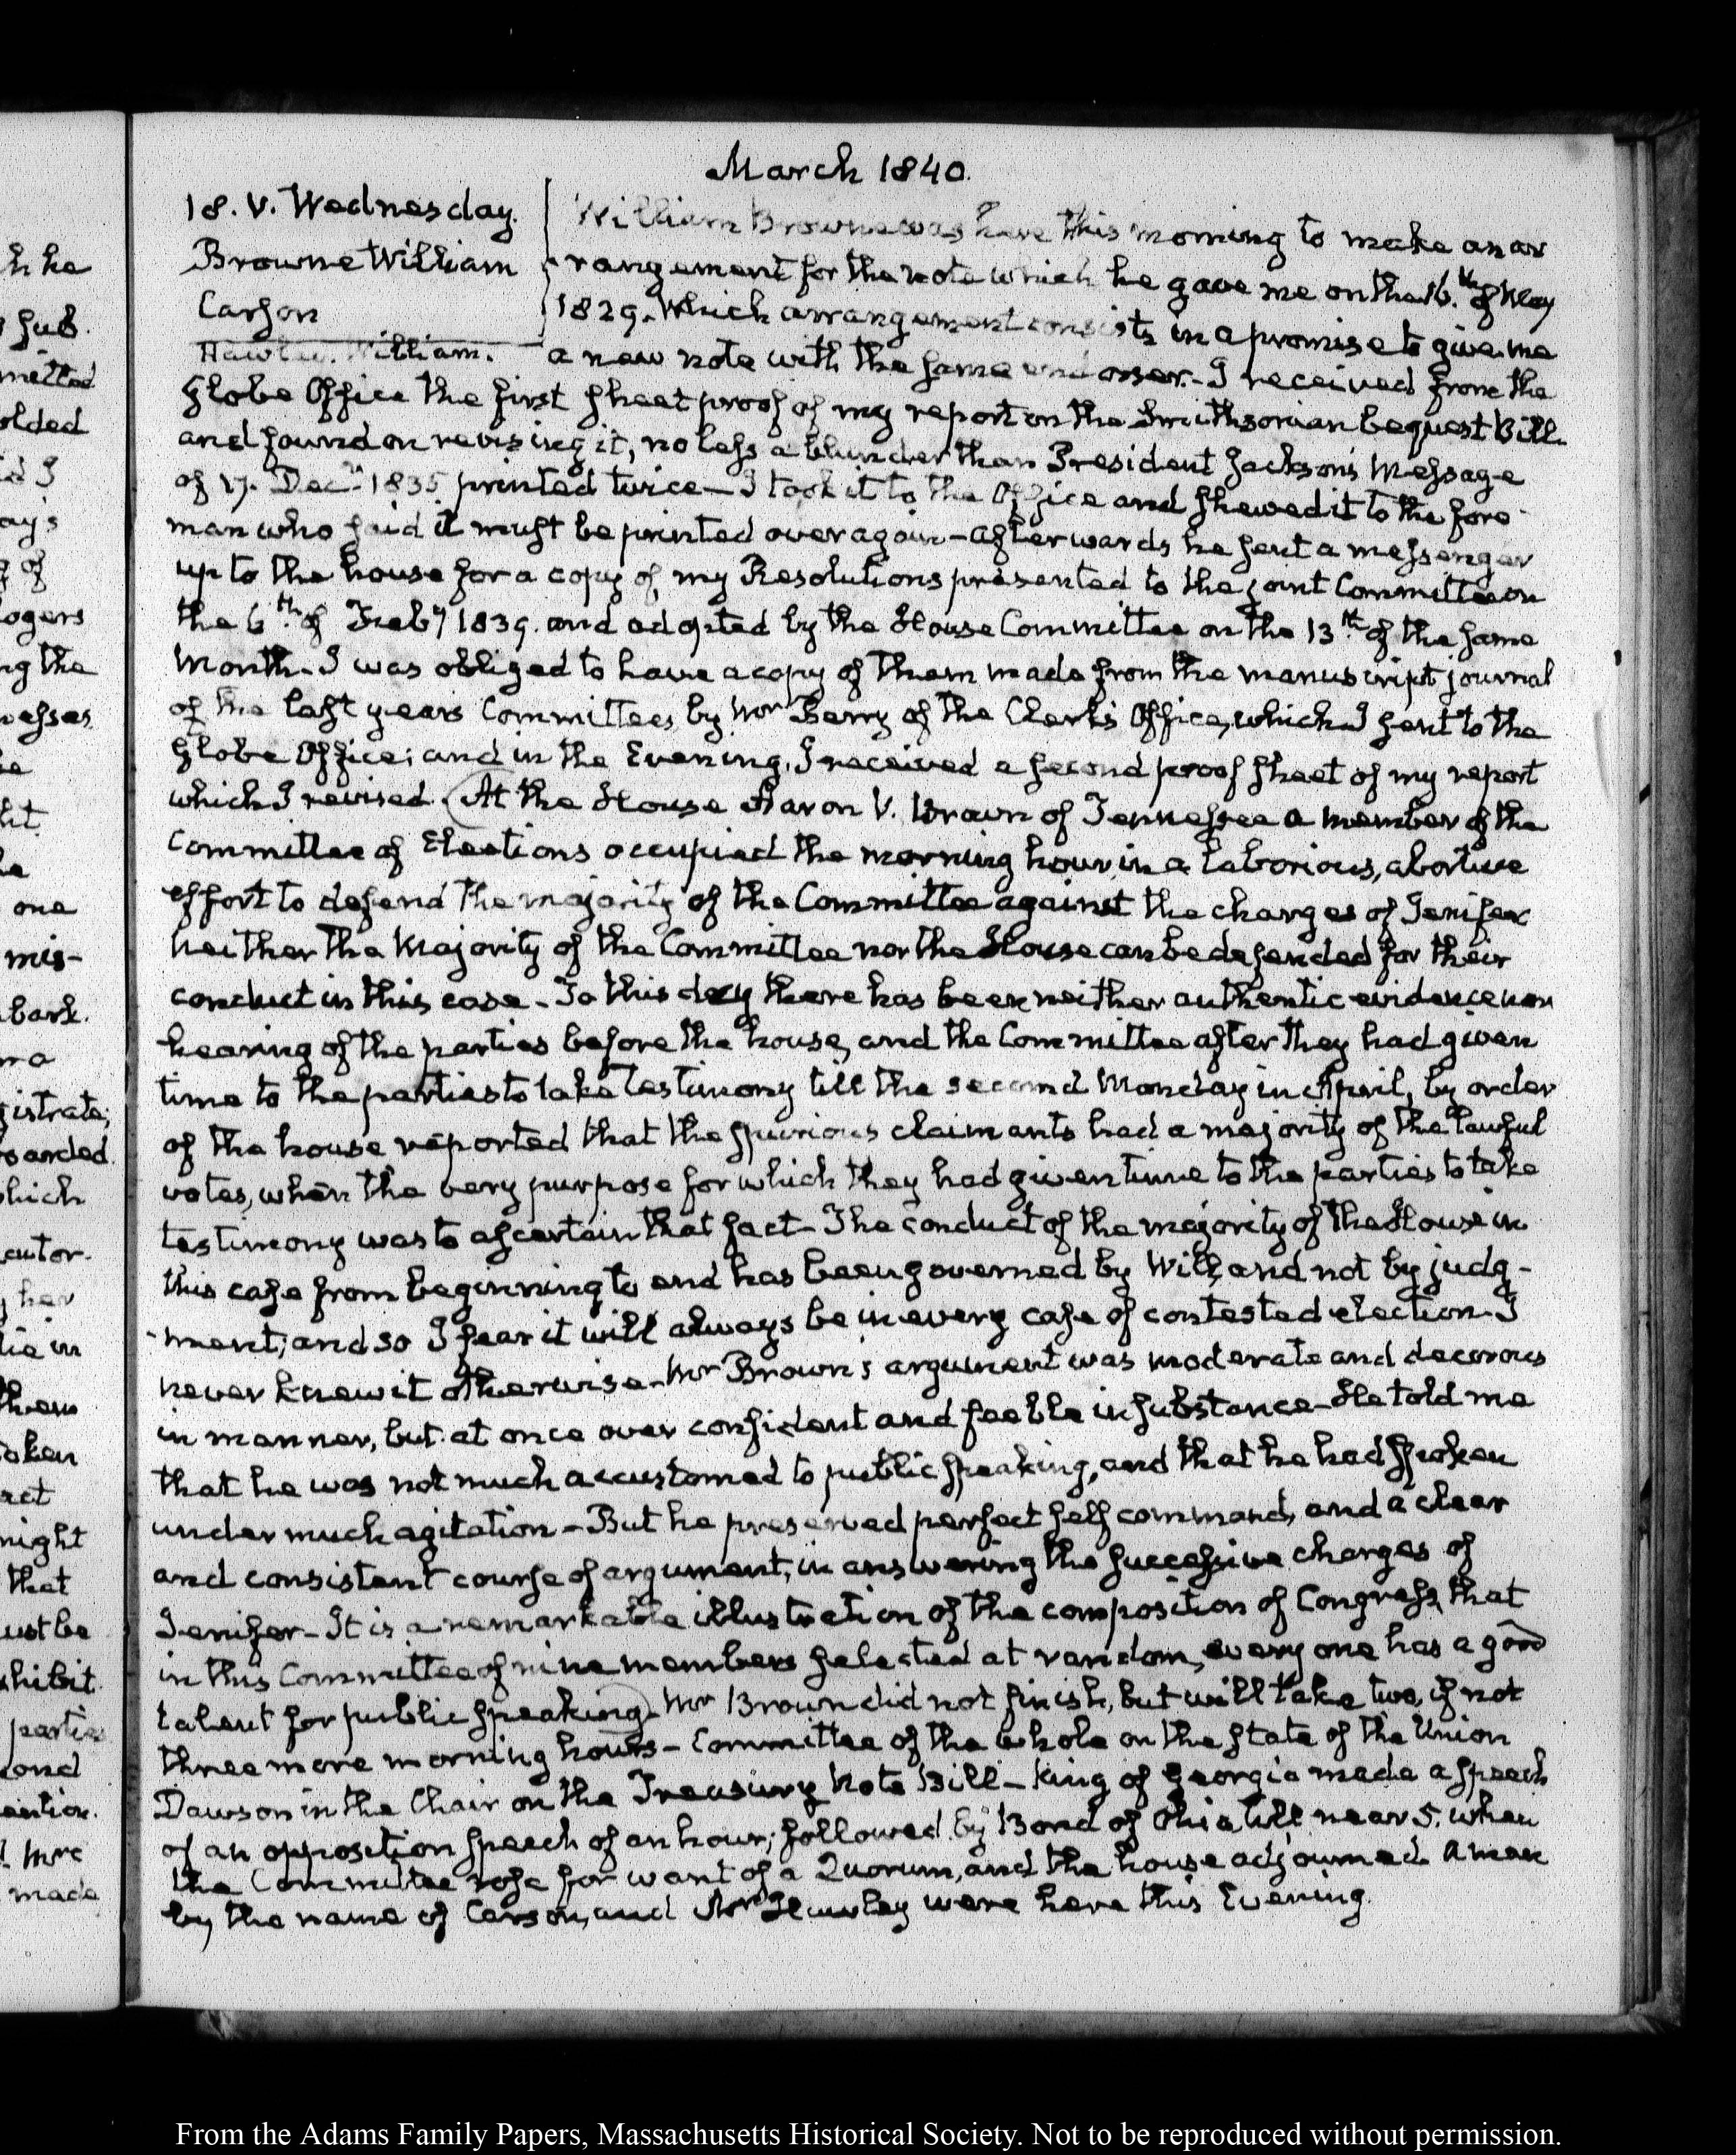 March 1840.
18. V. Wednesday.
Browne William
Carson
Hawley. William.
William Browne was here this morning to make an ar
rangement for the note which he gave me on the 16.th of May
1829. Which arrangement consists in a promise to give me
a new note with the same endorser. I received from the
Globe Office the first sheet proof of my report on the Smithsonian bequest Bill.
and found on revising it, no less a blunder than President Jackson's Message
of 17. Decr. 1835 printed twice — I took it to the Office and shewed it to the fore
man who said it must be printed over again — afterwards he sent a messenger
up to the house for a copy of my Resolutions presented to the joint Committee on
the 6th. of Feby 1839. and adopted by the House Committee on the 13th. of the same
Month — I was obliged to have a copy of them made from the manuscript journal
of the last years Committees, by Mr Berry of the Clerk's Office, which I sent to the
Globe Office; and in the Evening, I received a second proof sheet of my report
which I revised. (At the House Aaron V. Brown of Tennessee a member of the
Committee of Elections occupied the morning hour, in a laborious, abortive
effort to defend the majority of the Committee against the charges of Jenifer
Neither the Majority of the Committee nor the House can be defended for their
conduct in this case — To this day there has been neither authentic evidence nor
hearing of the parties before the house, and the Committee after they had given
time to the parties to take testimony till the second Monday in April, by order
of the house reported that the spurious claimants had a majority of the lawful
votes, when the very purpose for which they had given time to the parties to take
testimony was to ascertain that fact — The conduct of the majority of the House in
this case from beginning to end has been governed by Will, and not by judg-
-ment; and so I fear it will always be in every case of contested election — I
never knew it otherwise — Mr Brown's argument was moderate and decorous
in manner, but at once over confident and feeble in substance — He told me
that he was not much accustomed to public speaking, and that he had spoken
under much agitation — But he preserved perfect self command, and a clear
and consistent course of argument, in answering the successive charges of
Jenifer — It is a remarkable illustration of the composition of Congress, that
in this Committee of nine members selected at random, every one has a good
talent for public speaking) Mr Brown did not finish, but will take two, if not
three more morning hours — Committee of the whole on the state of the Union
Dawson in the Chair on the Treasury Note Bill — King of Georgia made a speech
of an opposition speech of an hour; followed by Bond of Ohio till near 5. when
the Committee rose for want of a Quorum, and the house adjourned. A man
by the name of Carson, and Mr Hawley were here this Evening.
From the Adams Family Papers, Massachusetts Historical Society. Not to be reproduced without permission.